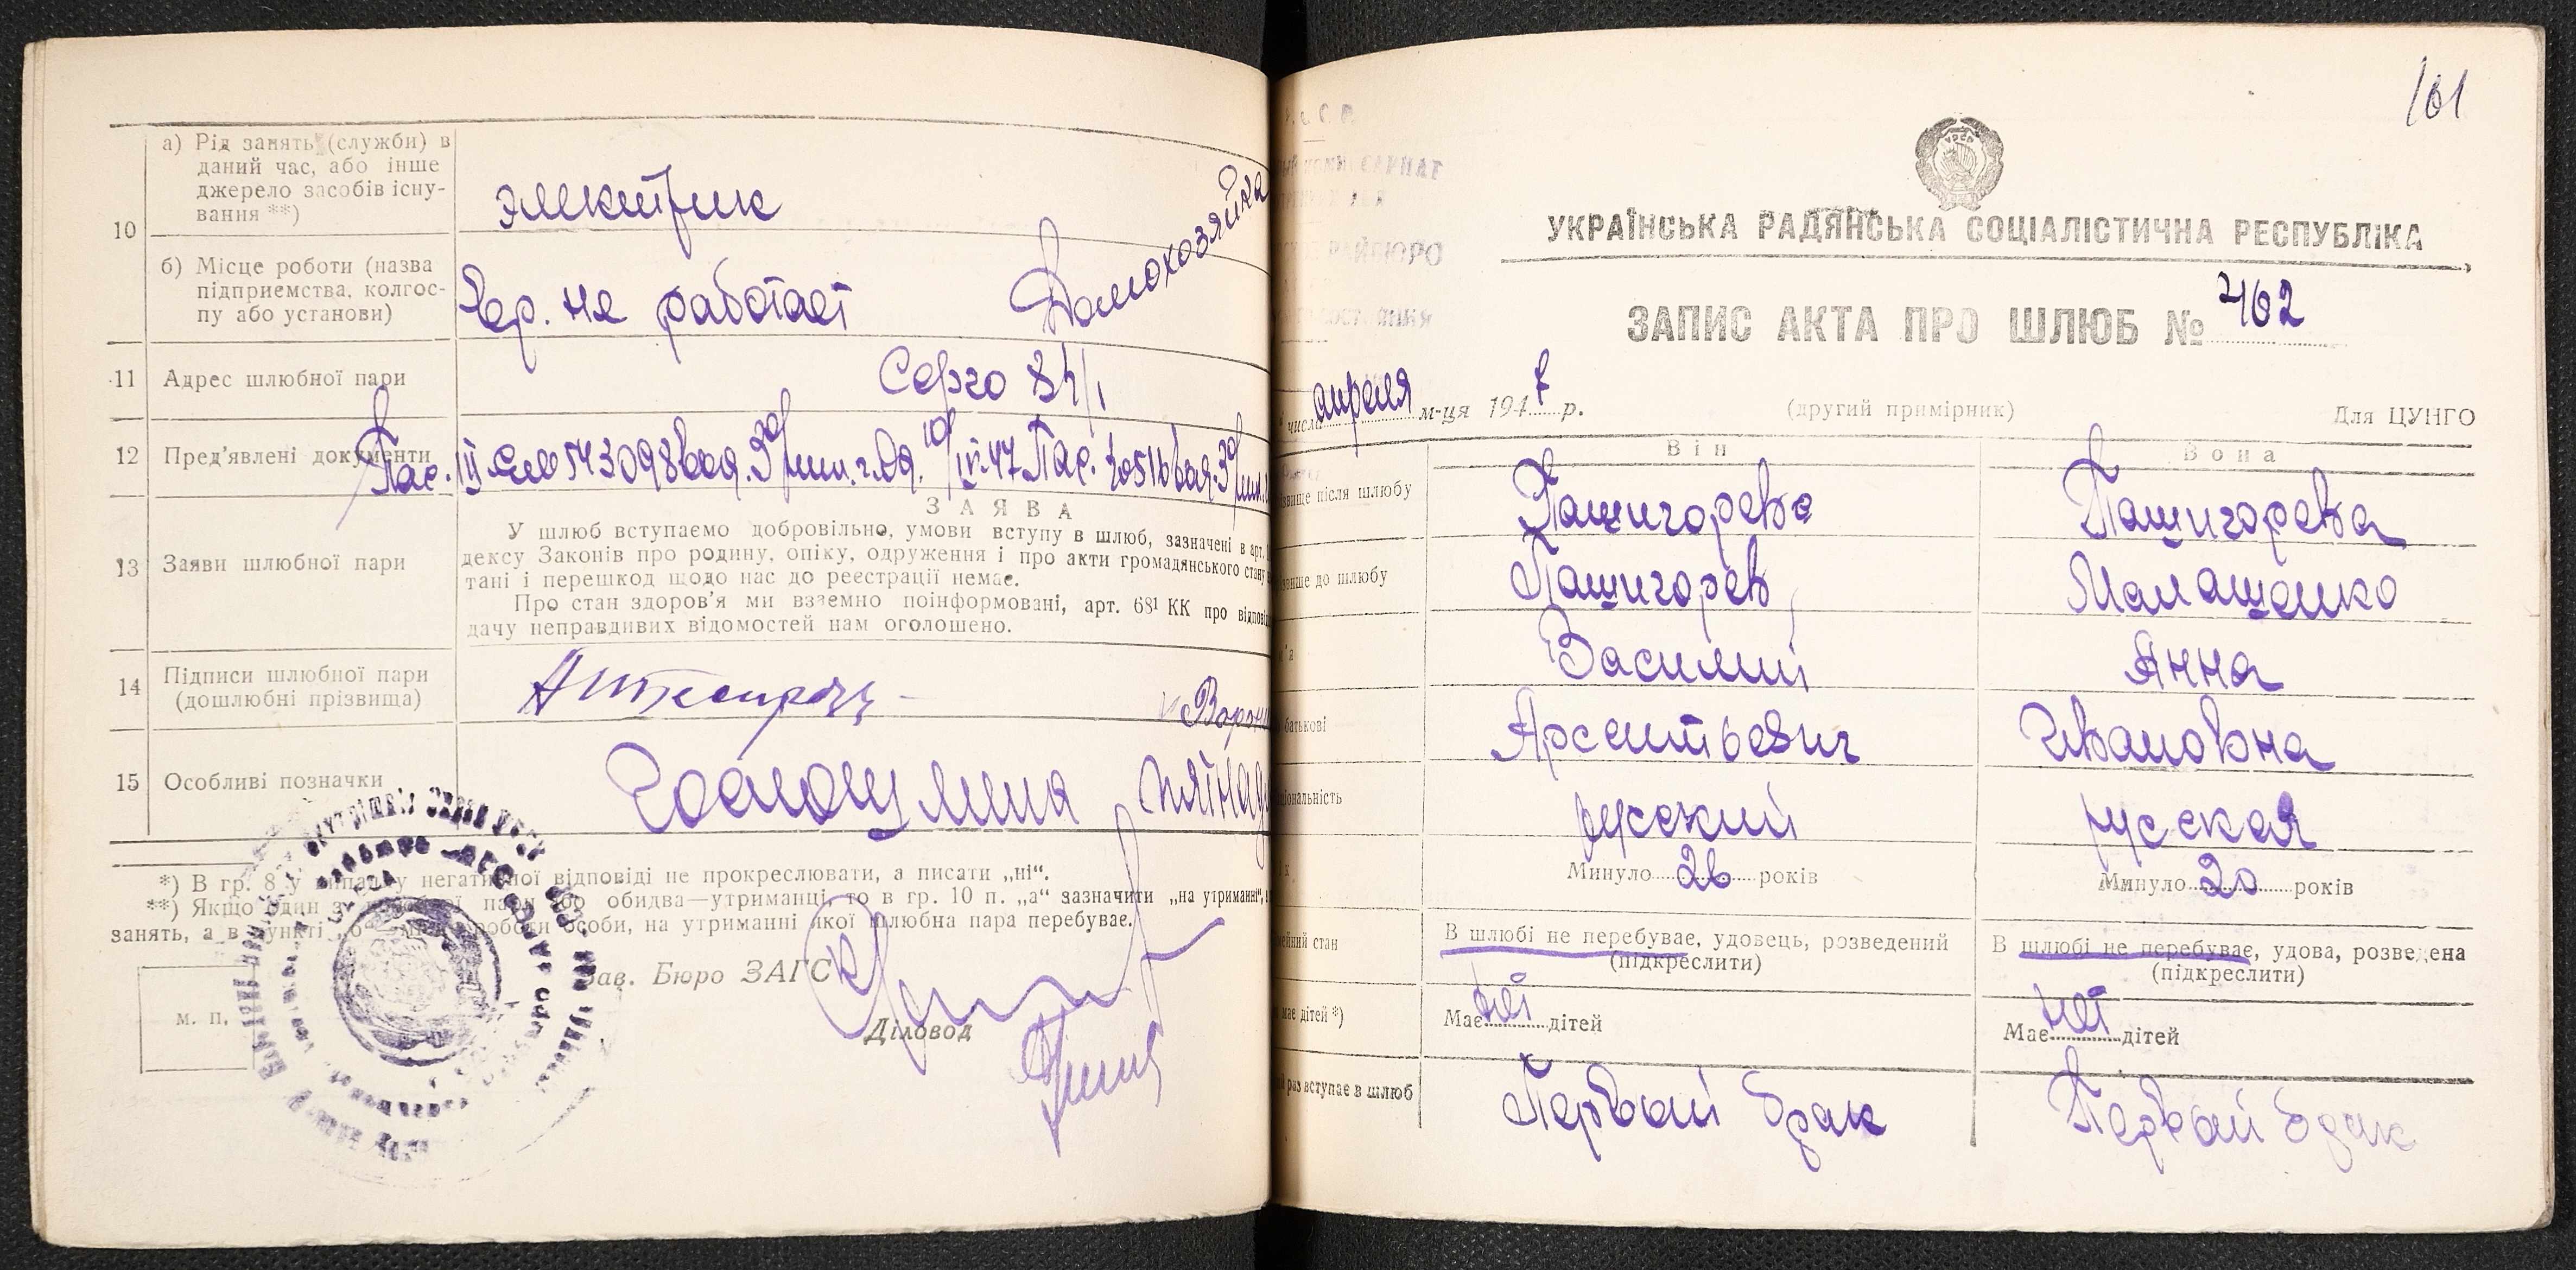 10
а) Рід занять (служби) в
даний час, або інше
джерело засобів існу-
вання **)
электрик
б) Місце роботи (назва
підприємства, колгос-
пу або установи)
Вр. не работает
Домохозяйка
11
Адрес шлюбної пари
Серго
12
Пред'явлені документи
Пас. III
13
Заяви шлюбної пари
ЗАЯВА
У шлюб вступаємо добровільно, умови вступу в шлюб, зазначені в арт.
дексу Законів про родину, опіку, одруження і про акти громадянського стану
тані і перешкод щодо нас до реєстрації немає.
Про стан здоров'я ми взаємно поінформовані, арт. 68¹ КК про відпові
дачу неправдивих відомостей нам оголошено.
14
Підписи шлюбної пари
(дошлюбні прізвища)
15
Особливі позначки
*) В гр. 8 у випадку негативної відповіді не прокреслювати, а писати „ні“.
**) Якщо один з пари або обидва—утриманці, то в гр. 10 п. „а“ зазначити „на утриманні“,
занять, а в пункті роботи особи, на утриманні якої шлюбна пара перебуває.
Зав. Бюро ЗАГС
м. п.
Діловод
101
УРСР
УКРАЇНСЬКА РАДЯНСЬКА СОЦІАЛІСТИЧНА РЕСПУБЛІКА
ЗАПИС АКТА ПРО ШЛЮБ № 462
числа апреля м-ця 1947 р.
(другий примірник)
Для ЦУНГО
Він
Вона
звище після шлюбу
Пашигорев
Пашигорева
звище до шлюбу
Пашигорев
Малашенко
м'я
Василий
Анна
батькові
Арсентьевич
Ивановна
ціональність
русский
русская
Минуло 26 років
Минуло 20 років
мейний стан
В шлюбі не перебуває, удовець, розведений
(підкреслити)
В шлюбі не перебуває, удова, розведена
(підкреслити)
має дітей *)
Має нет дітей
Має нет дітей
раз вступає в шлюб
Первый брак
Первый брак